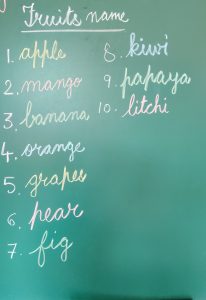 Fruits name
1. apple
2. mango
3. banana
4. orange
5. grapes
6. pear
7. fig
8. kiwi
9. papaya
10. litchi